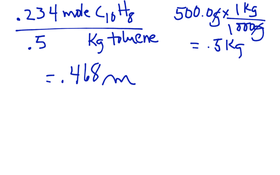 .234 mole C10H8
.5 Kg toluene
= .468 m
500.0g x 1 Kg
1000g
= .5 Kg